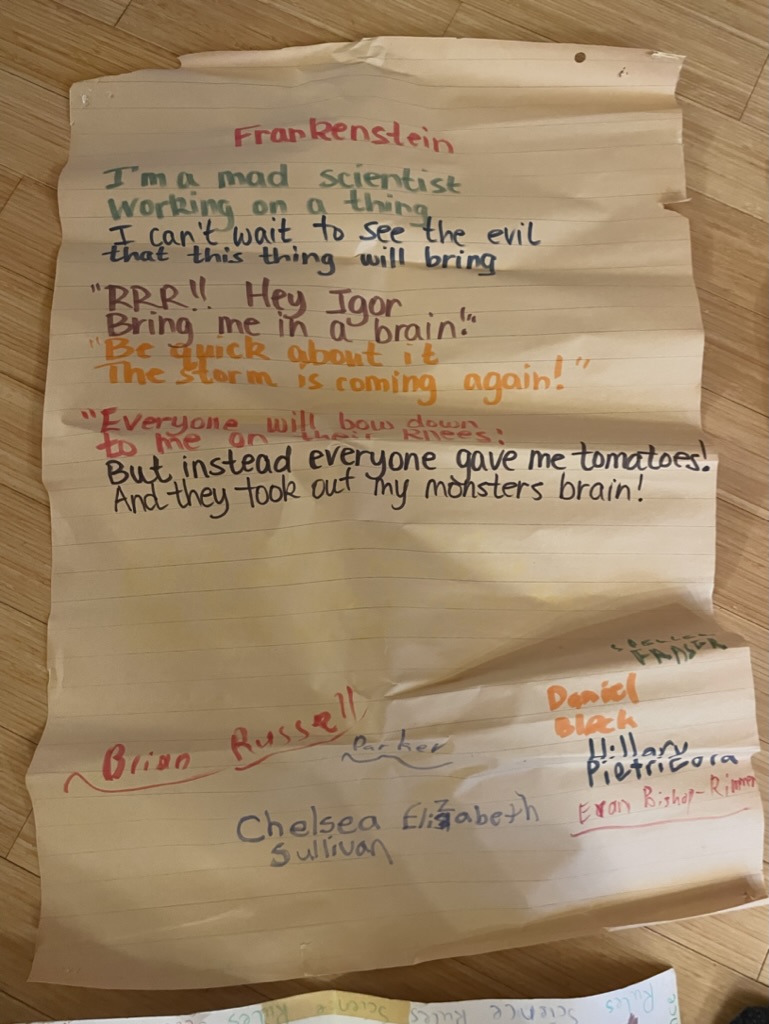 Frankenstein
I'm a mad scientist
working on a thing
I can't wait to see the evil
that this thing will bring
"RRR!! Hey Igor
Bring me in a brain!"
"Be quick about it
The storm is coming again!"
"Everyone will bow down
to me on their knees:
But instead everyone gave me tomatoes!
And they took out my monsters brain!
FRASER
Daniel
Black
Brian Russell
Parker
Hillary
Pietricora
Evan Bishop-Rimmer
Chelsea Elizabeth
Sullivan
Rules Science Rules Science Rules